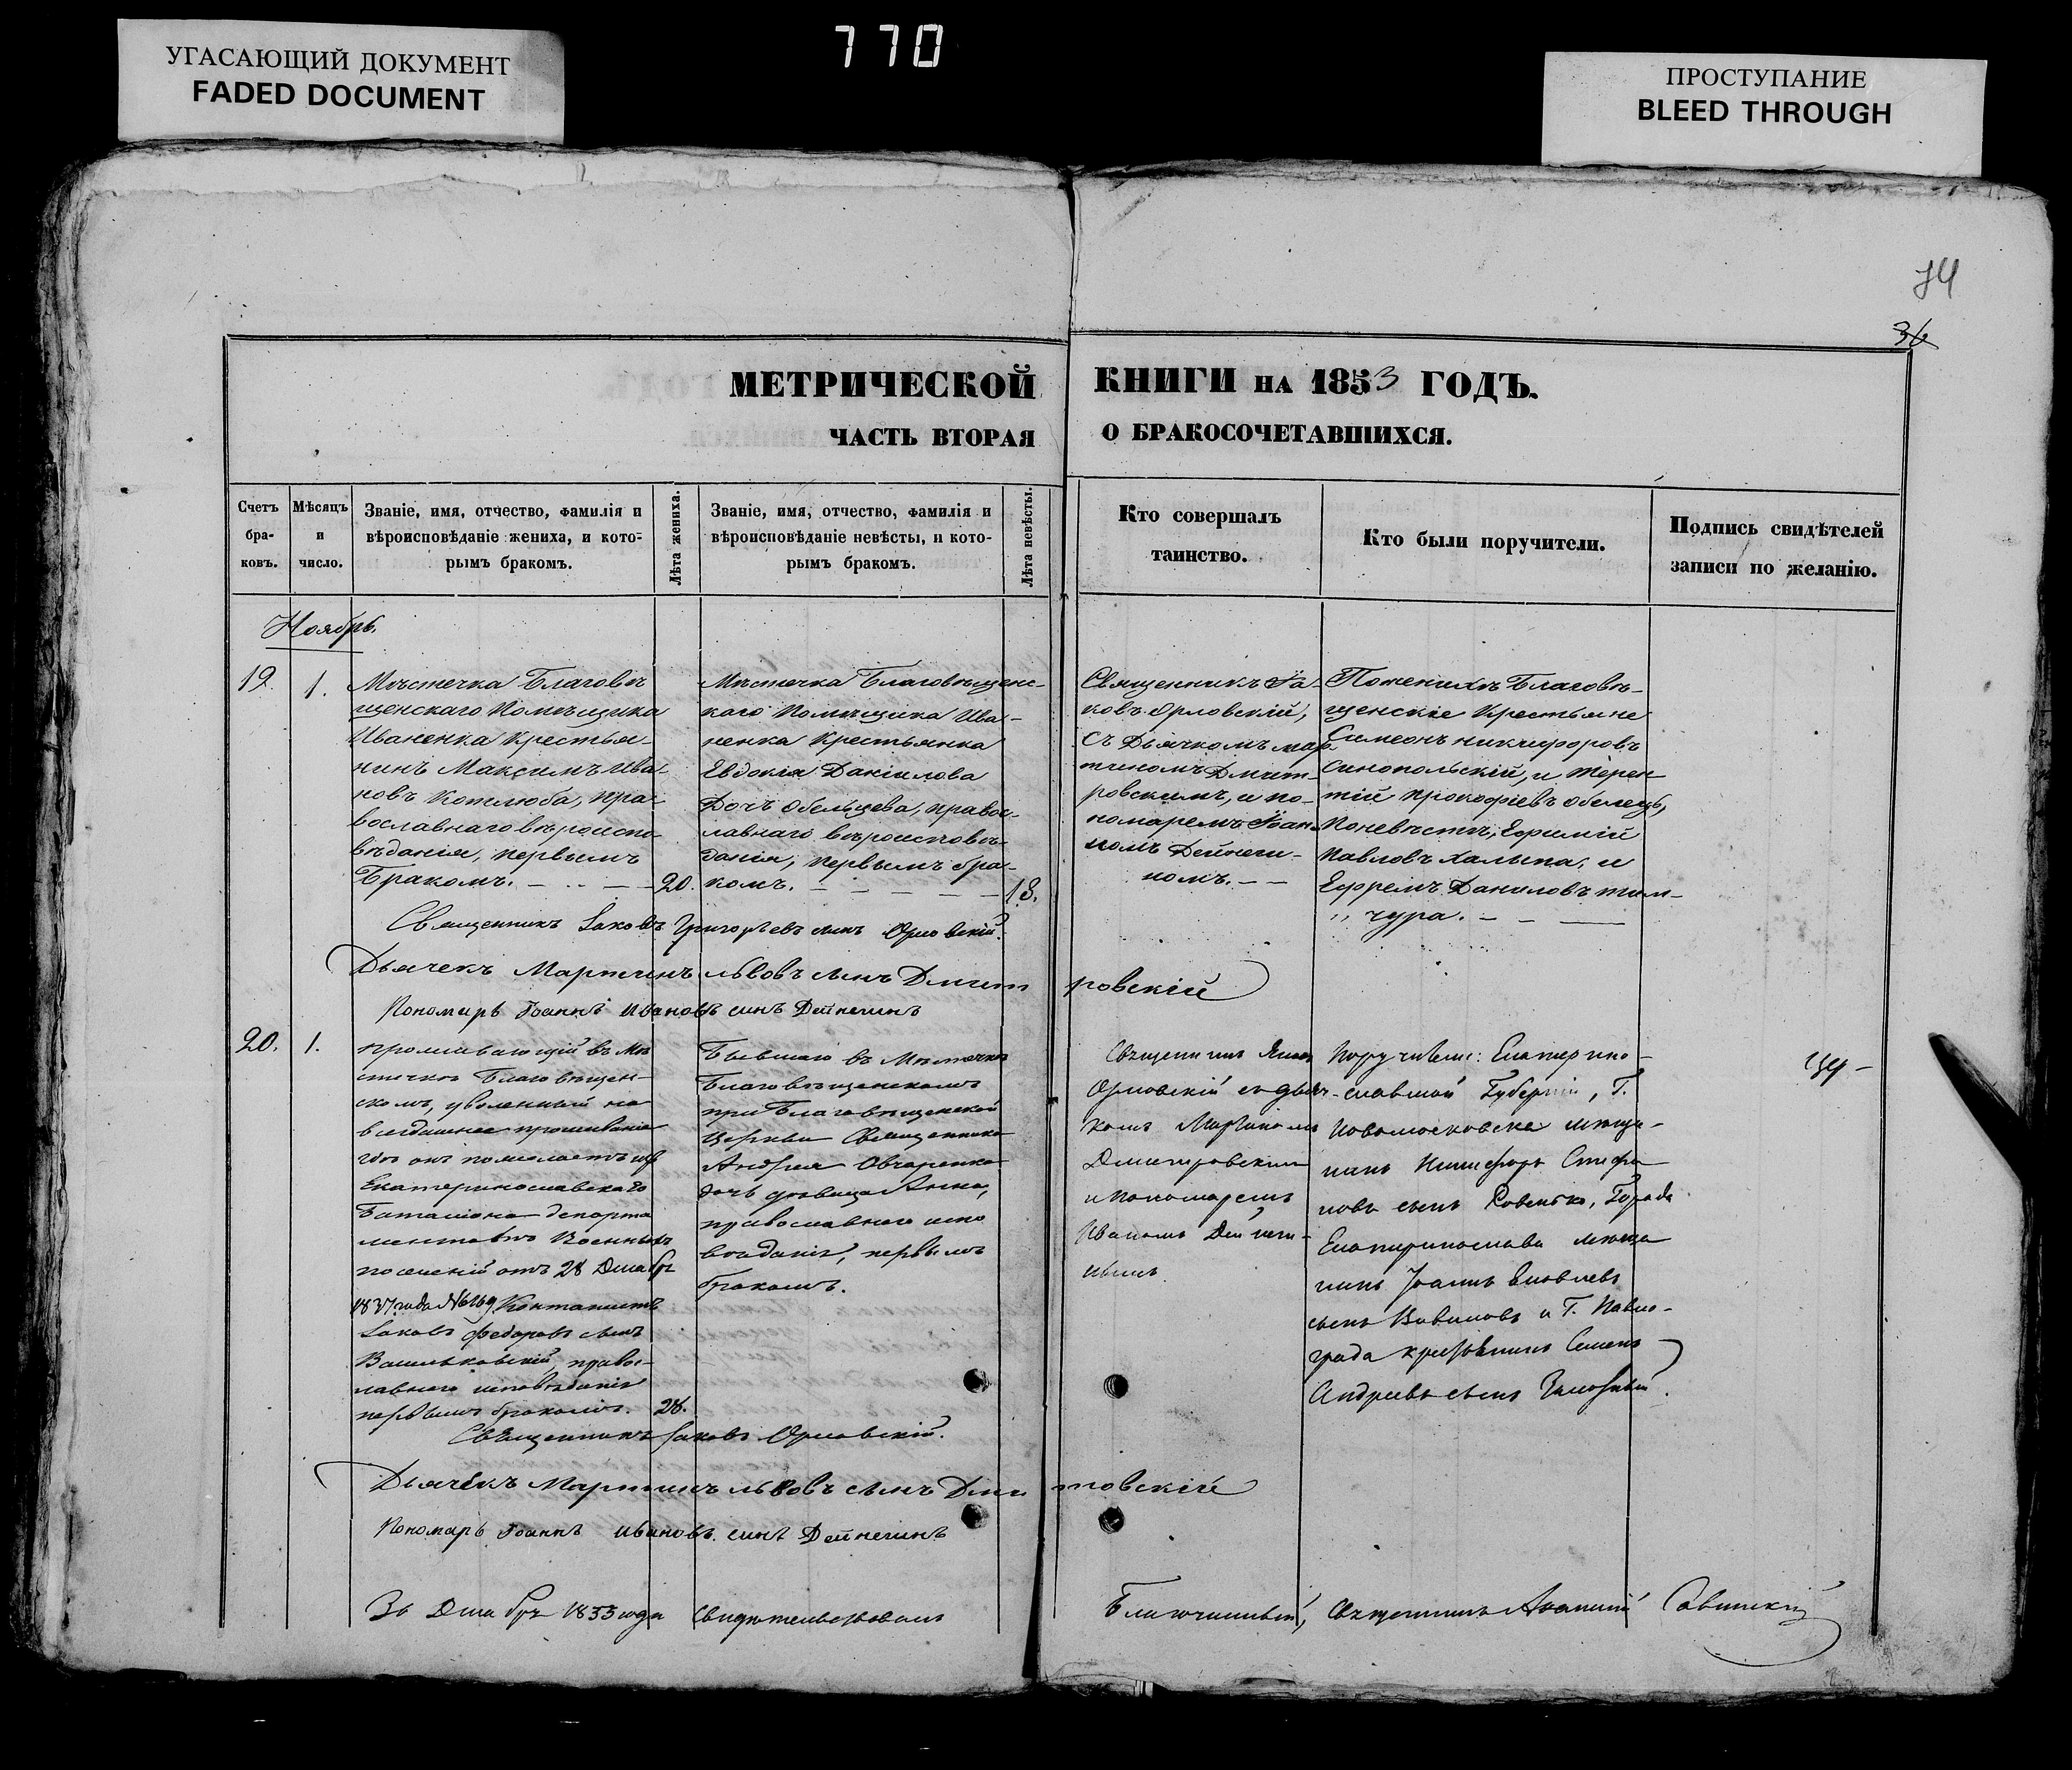 УГАСАЮЩИЙ ДОКУМЕНТ
FADED DOCUMENT
770
ПРОСТУПАНИЕ
BLEED THROUGH
74
36
МЕТРИЧЕСКОЙ КНИГИ НА 1853 ГОДЪ.
ЧАСТЬ ВТОРАЯ О БРАКОСОЧЕТАВШИХСЯ.
Счетъ
бра-
ковъ.
Мѣсяцъ
и
число.
Званіе, имя, отчество, фамилія и
вѣроисповѣданіе жениха, и кото-
рымъ бракомъ.
Лѣта жениха.
Званіе, имя, отчество, фамилія и
вѣроисповѣданіе невѣсты, и кото-
рымъ бракомъ.
Лѣта невѣсты.
Кто совершалъ
таинство.
Кто были поручители.
Подпись свидѣтелей
записи по желанію.
Ноябрь.
19.
1.
Мѣстечка Благовѣ
щенскаго помѣщика
Иваненка крестья-
нинъ Максимъ Ива-
новъ Котлюба, пра-
вославнаго вѣроиспо-
вѣданія, первымъ
Бракомъ.
20.
Мѣстечка Благовѣщенс-
каго помѣщика Ива-
ненка крестьянка
Евдокія Данілова
Дочь Обельцева, правос-
лавнаго вѣроисповѣ-
данія, первымъ бра-
комъ.
18.
Священникъ Іа-
ковъ Орловскій,
съ Дьячкомъ мар
тиномъ Дмит-
ровскимъ, и по-
номаремъ Іоан-
номъ Дейнеги-
номъ.
Поженихѣ Благовѣ-
щенскіе крестьяне
Симеонъ никифоровъ
Синопольскій, и терен-
тій прокофіевъ обелецъ,
Поневѣстѣ, Ефимій
Павловъ Халыпа, и
Ефремъ Даниловъ там-
чура.
Священникъ Іаковъ Григорьевъ сынъ Орловскій.
Дьячекъ Мартинъ Львовъ сынъ Дмитровскій
Пономарь Іоаннъ Ивановъ синъ Дейнегинъ
20.
1.
проживающій въ мѣ
стечкѣ Благовѣщен-
скомъ, уволенный на
всегдашнее проживаніе
Екатеринославскаго
Баталіона департа
ментовъ Военныхъ
поселеній отъ 28 Декабря
1837 года Кантонистъ
Іаковъ федоровъ сынъ
Васильковскій, правос-
лавнаго исповѣданія
первымъ бракомъ.
28.
Бывшаго въ Мѣстечкѣ
Благовѣщенскомъ
при Благовѣщенской
Церкви Священника
Андрея Овчаренка
дочь дѣвица Анна,
православнаго испо
вѣданія, первымъ
бракомъ.
Священникъ Яковъ
Орловскій съ дьяч-
комъ Мартиномъ
Дмитровскимъ
и пономаремъ
Иваномъ Дейнеги-
нымъ
Поручители: Екатерино-
славской Губерніи, Г.
Новомосковска мѣща-
нинъ Никифоръ Стефа
новъ сынъ Ровенко, Города
Екатеринослава мѣща
нинъ Іоаннъ Яковлевъ
сынъ Вавиловъ и Г. Павло-
града крестьянинъ Семенъ
Андреевъ сынъ
Священникъ Іаковъ Орловскій.
Дьячекъ Мартинъ Львовъ сынъ Дмитровскій
Пономарь Іоаннъ Ивановъ синъ Дейнегинъ
За Декабрь 1853 года свидѣтельствовалъ Благочинный, священникъ Савинскій